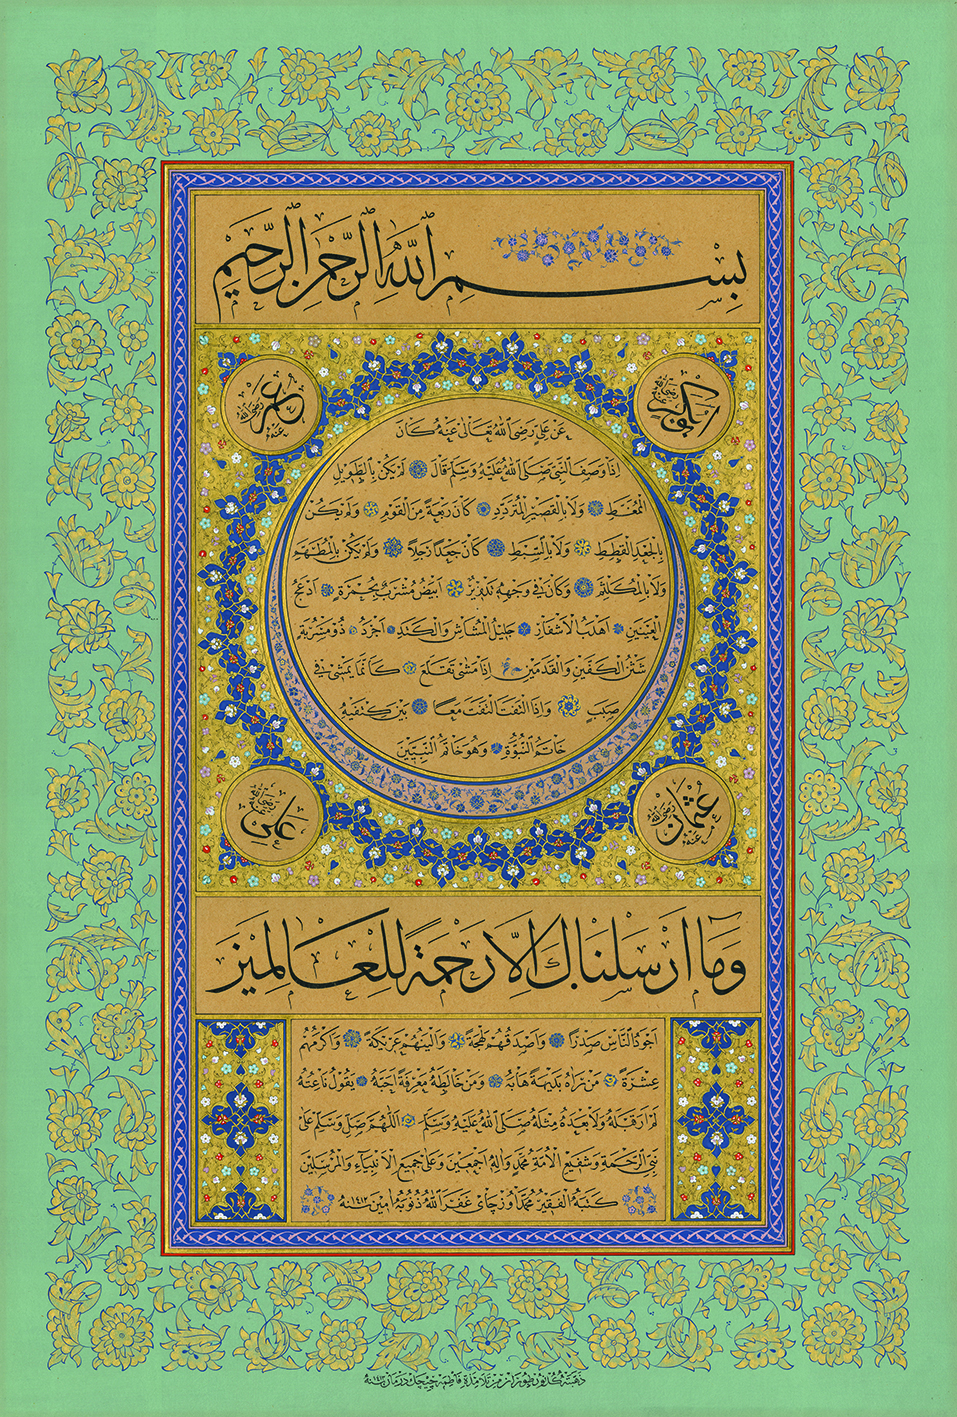 بِسْمِ اللّٰهِ الرَّحْمٰنِ الرَّحِيمِ
ابو بكر رضى الله عنه
عمر رضى الله عنه
عَنْ عَلِيٍّ رَضِىَ اللهُ تَعَالٰى عَنْهُ كَانَ
اِذَا وَصَفَ النَّبِىَّ صَلَّى اللهُ عَلَيْهِ وَسَلَّمَ قَالَ لَمْ يَكُنْ بِالطَّوِيلِ
الْمُمَّغِطِ وَلَا بِالْقَصِيرِ الْمُتَرَدِّدِ كَانَ رَبْعَةً مِنَ الْقَوْمِ وَلَمْ يَكُنْ
بِالْجَعْدِ الْقَطَطِ وَلَا بِالسَّبِطِ كَانَ جَعْدًا رَجِلًا وَلَمْ يَكُنْ بِالْمُطَهَّمِ
وَلَا بِالْمُكَلْثَمِ وَكَانَ فِى وَجْهِهِ تَدْوِيرٌ اَبْيَضُ مُشْرَبٌ بِحُمْرَةٍ اَدْعَجُ
الْعَيْنَيْنِ اَهْدَبُ الْاَشْفَارِ جَلِيلُ الْمُشَاشِ وَالْكَتَدِ اَجْرَدُ ذُو مَسْرُبَةٍ
شَثْنُ الْكَفَّيْنِ وَالْقَدَمَيْنِ اِذَا مَشٰى تَقَلَّعَ كَاَنَّمَا يَمْشِى فِى
صَبَبٍ وَاِذَا الْتَفَتَ الْتَفَتَ مَعًا بَيْنَ كَتِفَيْهِ
خَاتَمُ النُّبُوَّةِ وَهُوَ خَاتَمُ النَّبِيِّينَ
عثمان رضى الله عنه
على رضى الله عنه
وَمَا اَرْسَلْنَاكَ اِلَّا رَحْمَةً لِلْعَالَمِينَ
اَجْوَدُ النَّاسِ صَدْرًا وَاَصْدَقُهُمْ لَهْجَةً وَاَلْيَنُهُمْ عَرِيكَةً وَاَكْرَمُهُمْ
عِشْرَةً مَنْ رَاٰهُ بَدِيهَةً هَابَهُ وَمَنْ خَالَطَهُ مَعْرِفَةً اَحَبَّهُ يَقُولُ نَاعِتُهُ
لَمْ اَرَ قَبْلَهُ وَلَا بَعْدَهُ مِثْلَهُ صَلَّى اللهُ عَلَيْهِ وَسَلَّمَ اَللّٰهُمَّ صَلِّ وَسَلِّمْ عَلٰى
نَبِىِّ الرَّحْمَةِ وَشَفِيعِ الْاُمَّةِ مُحَمَّدٍ وَاٰلِهِ اَجْمَعِينَ وَعَلٰى جَمِيعِ الْاَنْبِيَاءِ وَالْمُرْسَلِينَ
كَتَبَهُ الْفَقِيرُ مُحَمَّد اُوزْچَاى غَفَرَ اللهُ ذُنُوبَهُ اٰمِين سنه ١٤١٢
ذهبته من تلامذة فاطمة چيچك درمان سنه